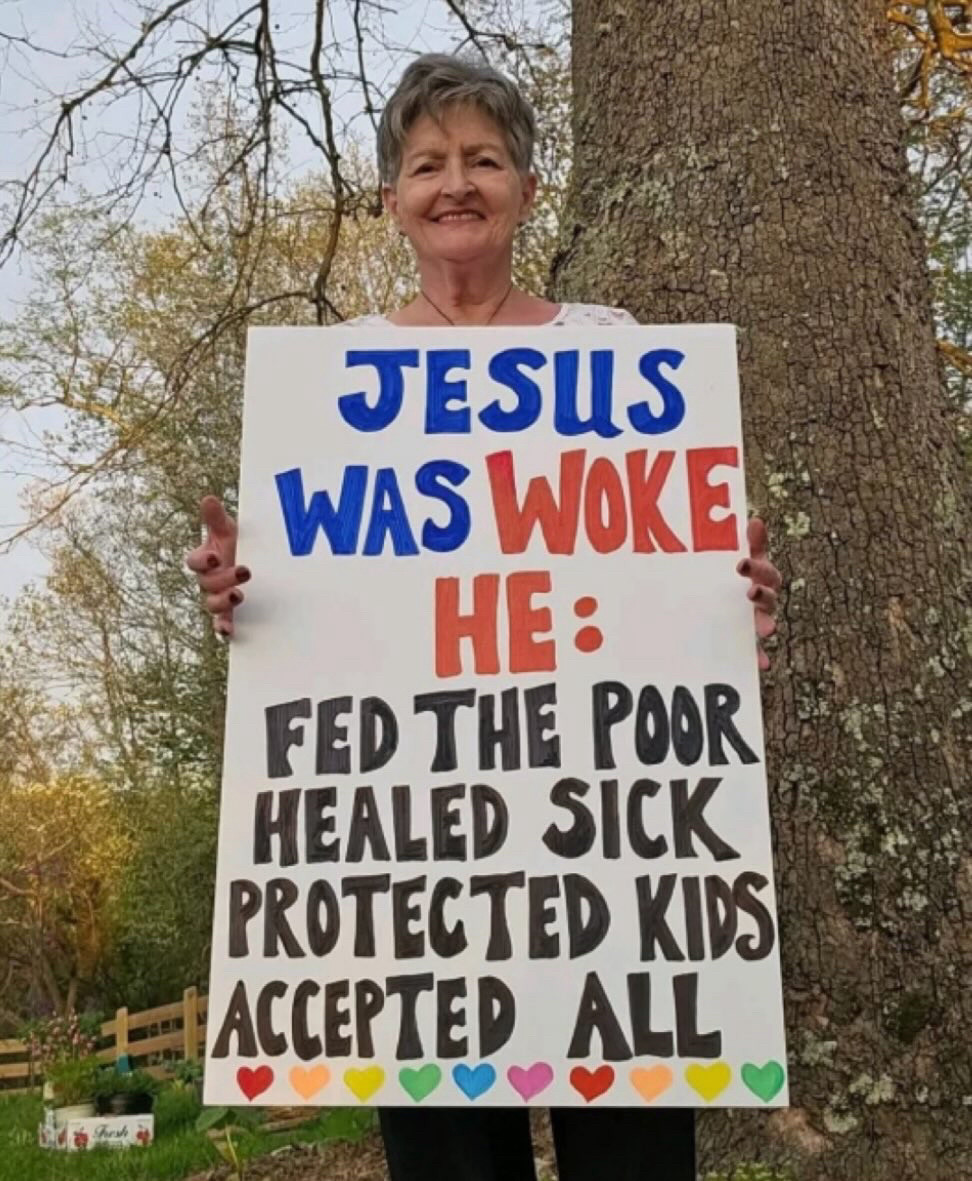 JESUS
WAS WOKE
HE:
FED THE POOR
HEALED SICK
PROTECTED KIDS
ACCEPTED ALL
Fresh